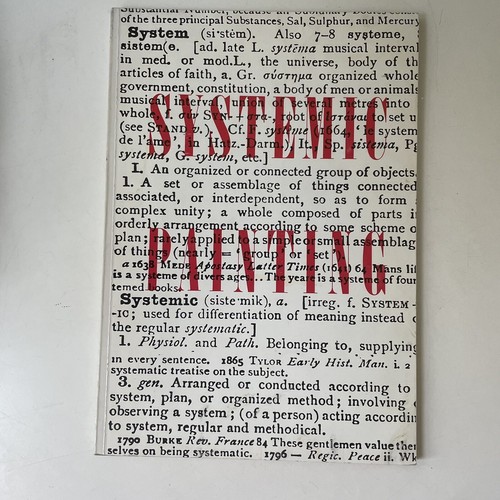 Substantial Number, because all Sublunary Bodies consi
of the three principal Substances, Sal, Sulphur, and Mercury
System (si·stėm). Also 7–8 systeme,
sistem(e. [ad. late L. systēma musical interval
in med. or mod.L., the universe, body of th
articles of faith, a. Gr. σύστημα organized whole
government, constitution, a body of men or animals
musical interval
whole, f. συν root of set u
(see STAND v.). Cf. F. système (1664, le system
de l'ame' in Hatz.-Darm.), It., Sp. sistema, Pg
systema, G. system, etc.]
SYSTEMIC
I. An organized or connected group of objects
1. A set or assemblage of things connected
associated, or interdependent, so as to form
complex unity; a whole composed of parts i
orderly arrangement according to some scheme o
plan; rarely applied to a simple or small assemblag
of things (nearly = 'group' or 'set'
a 1638 MEDE Apostasy Latter Times (1641) 64 Mans lif
is a systeme of divers ages... The yeare is a systeme of four
temed books.
PAINTING
Systemic (siste·mik), a. [irreg. f. SYSTEM
-IC; used for differentiation of meaning instead o
the regular systematic.]
1. Physiol. and Path. Belonging to, supplying
in every sentence. 1865 TYLOR Early Hist. Man. i. 2
systematic treatise on the subject.
3. gen. Arranged or conducted according to
system, plan, or organized method; involving
observing a system; (of a person) acting accordin
to system, regular and methodical.
1790 BURKE Rev. France 84 These gentlemen value the
selves on being systematic. 1796 — Regic. Peace ii. Wk